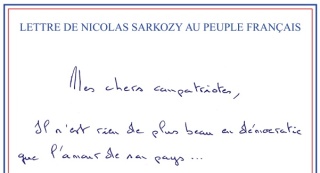 LETTRE DE NICOLAS SARKOZY AU PEUPLE FRANÇAIS
Mes chers compatriotes,
Il n'est rien de plus beau en démocratie
que l'amour de son pays ...